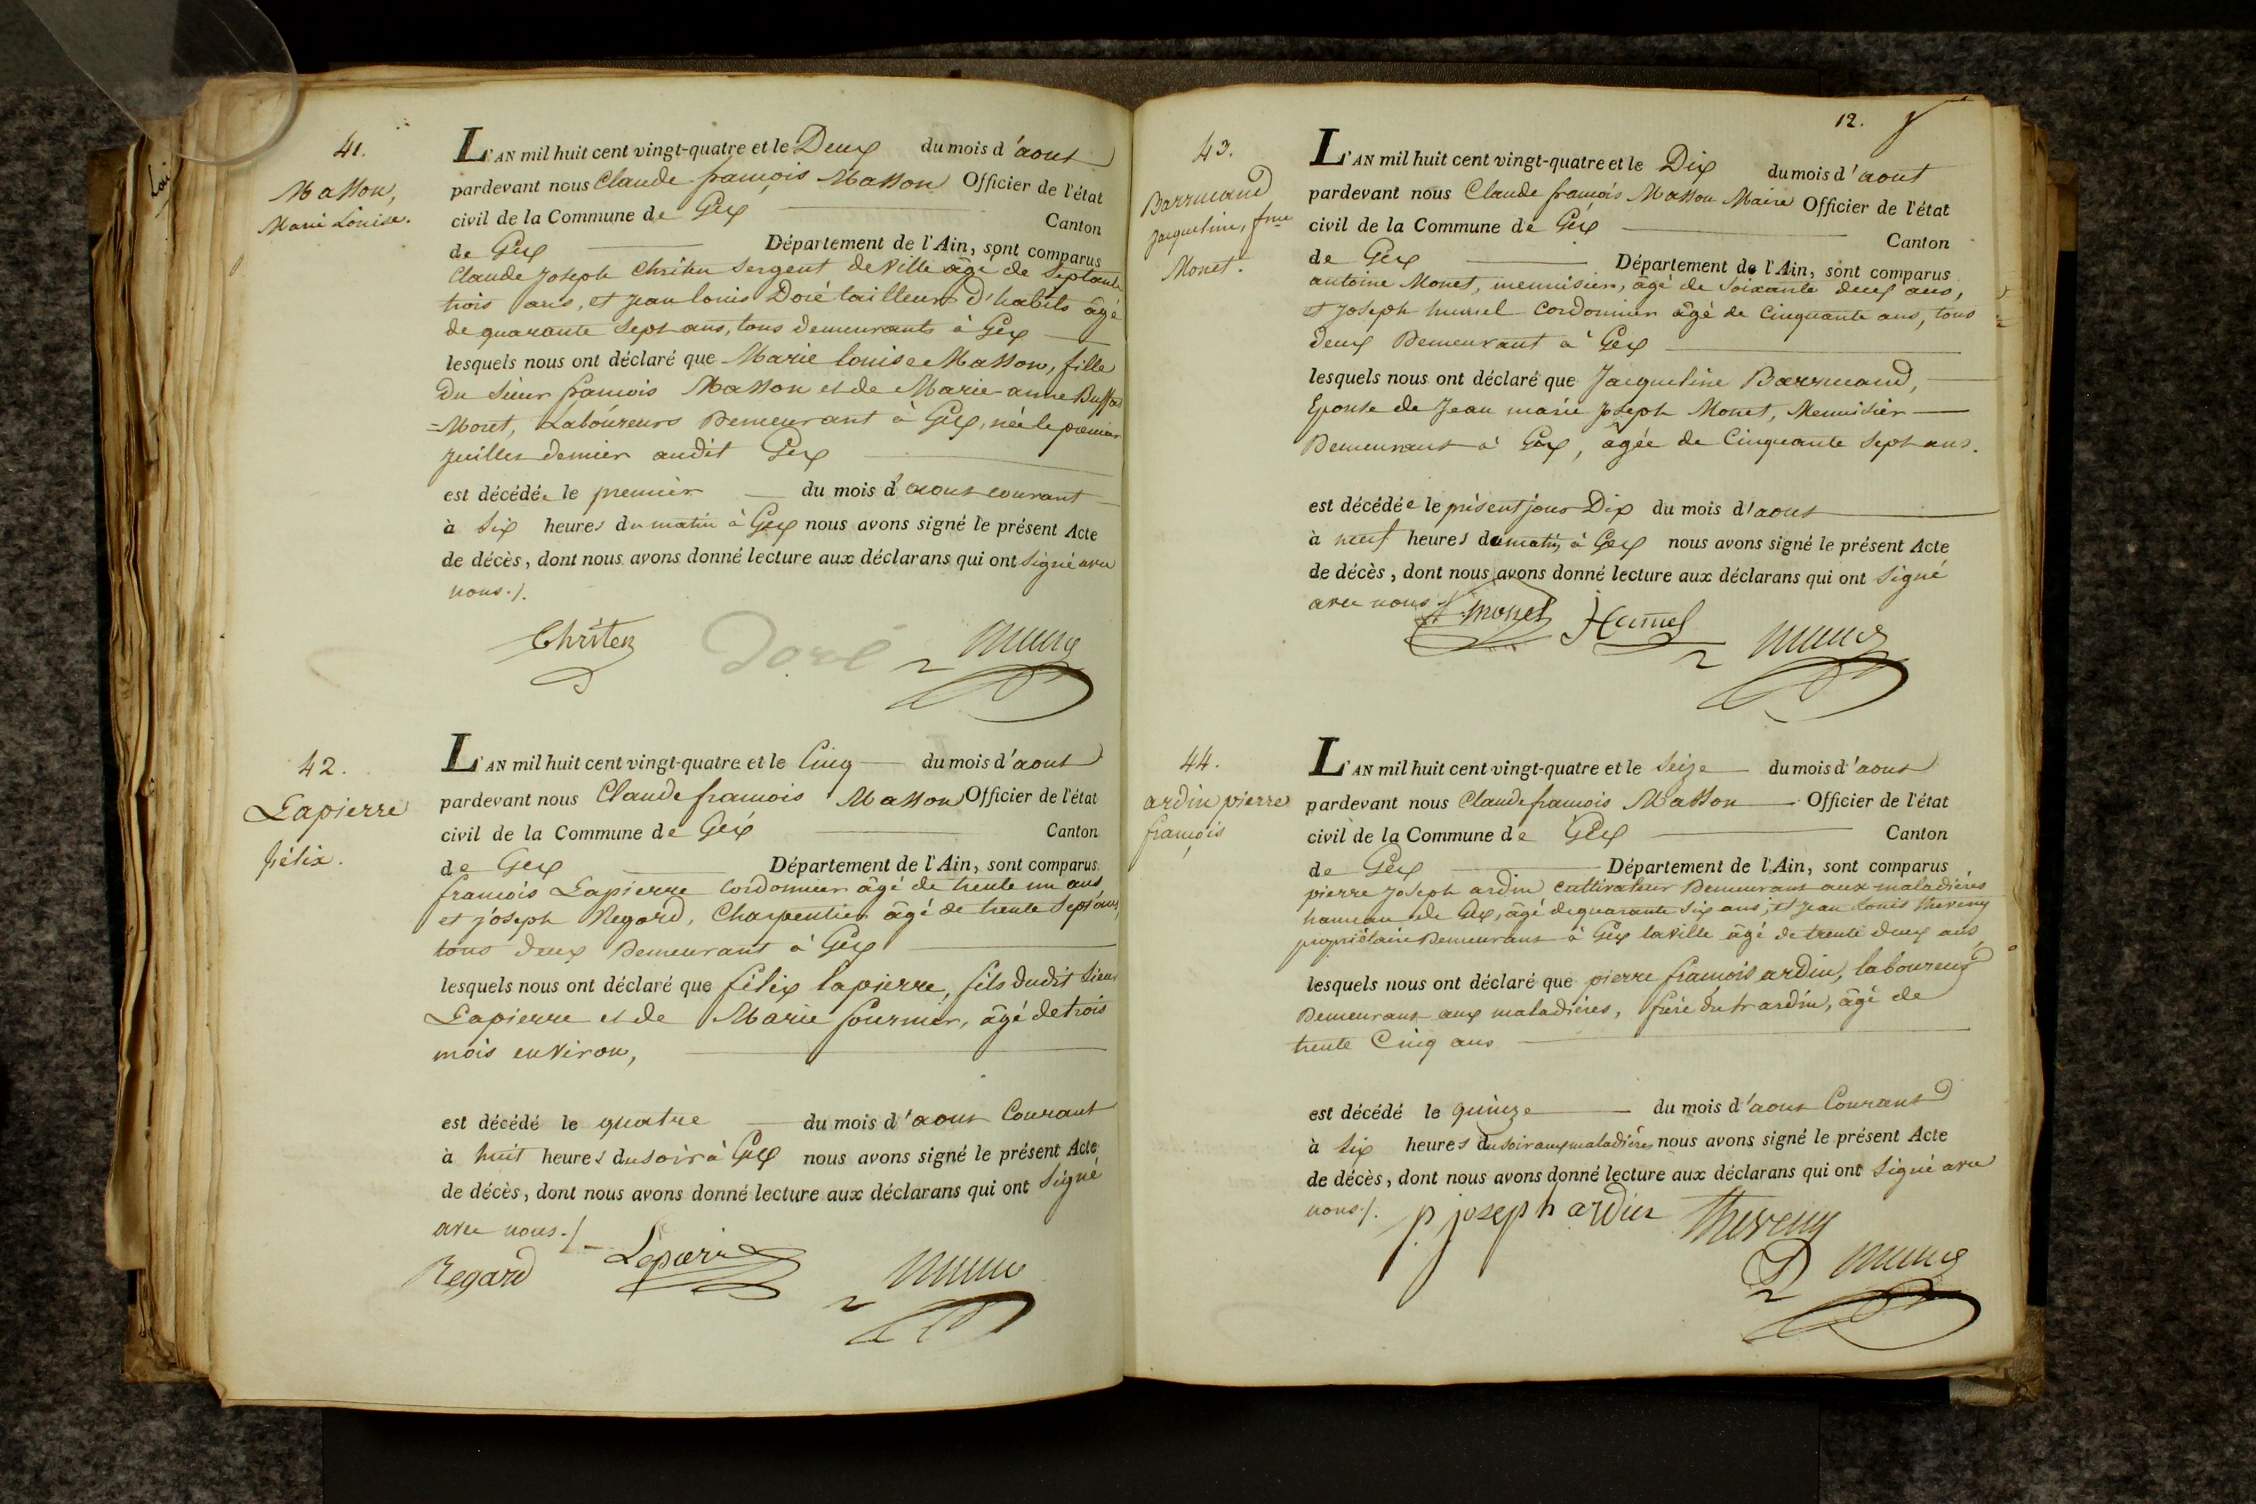 41.
Masson,
Marie Louise.
L'AN mil huit cent vingt-quatre et le Deux du mois d'aout
pardevant nous Claude françois Masson Officier de l'état
civil de la Commune de Gex Canton
de Gex Département de l'Ain, sont comparus
Claude Joseph Chriten Sergent de Ville âgé de Septante
trois ans, et Jean louis Doré tailleur d'habits âgé
de quarante Sept ans, tous demeurants à Gex
lesquels nous ont déclaré que Marie louise Masson, fille
Du Sieur françois Masson et de Marie anne Buffad
=Moret, Laboureurs Demeurant à Gex, née le premier
Juillet dernier audit Gex
est décédée le premier du mois d'aout courant
à Six heures du matin à Gex nous avons signé le présent Acte
de décès, dont nous avons donné lecture aux déclarans qui ont Signé avec
nous./.
Chriten Doré
42.
Lapierre
félix.
L'AN mil huit cent vingt-quatre et le Cinq du mois d'aout
pardevant nous Claude françois Masson Officier de l'état
civil de la Commune de Gex Canton
de Gex Département de l'Ain, sont comparus
françois Lapierre Cordonnier âgé de trente un ans
et joseph Regard, Charpentier âgé de trente Sept ans,
tous deux Demeurant à Gex
lesquels nous ont déclaré que félix lapierre, fils dudit Sieur
Lapierre et de Marie fournier, âgé de trois
mois environ,
est décédé le quatre du mois d'aout Courant
à huit heures du soir à Gex nous avons signé le présent Acte
de décès, dont nous avons donné lecture aux déclarans qui ont Signé
avec nous./.
Regard Lapierre
12.
43.
Barrucand
Jacqueline, fme
Monet.
L'AN mil huit cent vingt-quatre et le Dix du mois d'aout
pardevant nous Claude françois Masson Maire Officier de l'état
civil de la Commune de Gex Canton
de Gex Département de l'Ain, sont comparus
antoine Monet, menuisier, âgé de Soixante deux ans,
et Joseph humel Cordonnier âgé de Cinquante ans, tous
deux Demeurant à Gex
lesquels nous ont déclaré que Jacqueline Barrucand,
Epouse de Jean marie Joseph Monet, Menuisier
Demeurant à Gex, âgée de Cinquante Sept ans.
est décédée le présent jour Dix du mois d'aout
à neuf heures du matin à Gex nous avons signé le présent Acte
de décès, dont nous avons donné lecture aux déclarans qui ont Signé
avec nous
monet Humel
44.
ardin pierre
françois
L'AN mil huit cent vingt-quatre et le Seize du mois d'aout
pardevant nous Claude françois Masson Officier de l'état
civil de la Commune de Gex Canton
de Gex Département de l'Ain, sont comparus
pierre Joseph ardin Cultivateur Demeurant aux maladières
hameau de Gex, âgé de quarante Six ans, et Jean Louis theveny
propriétaire Demeurant à Gex la ville âgé de trente deux ans
lesquels nous ont déclaré que pierre françois ardin, laboureur
Demeurant aux maladières, frère dudit ardin, âgé de
trente Cinq ans
est décédé le quinze du mois d'aout Courant
à Six heures du soir aux maladières nous avons signé le présent Acte
de décès, dont nous avons donné lecture aux déclarans qui ont Signé avec
nous./.
p joseph ardin Theveny